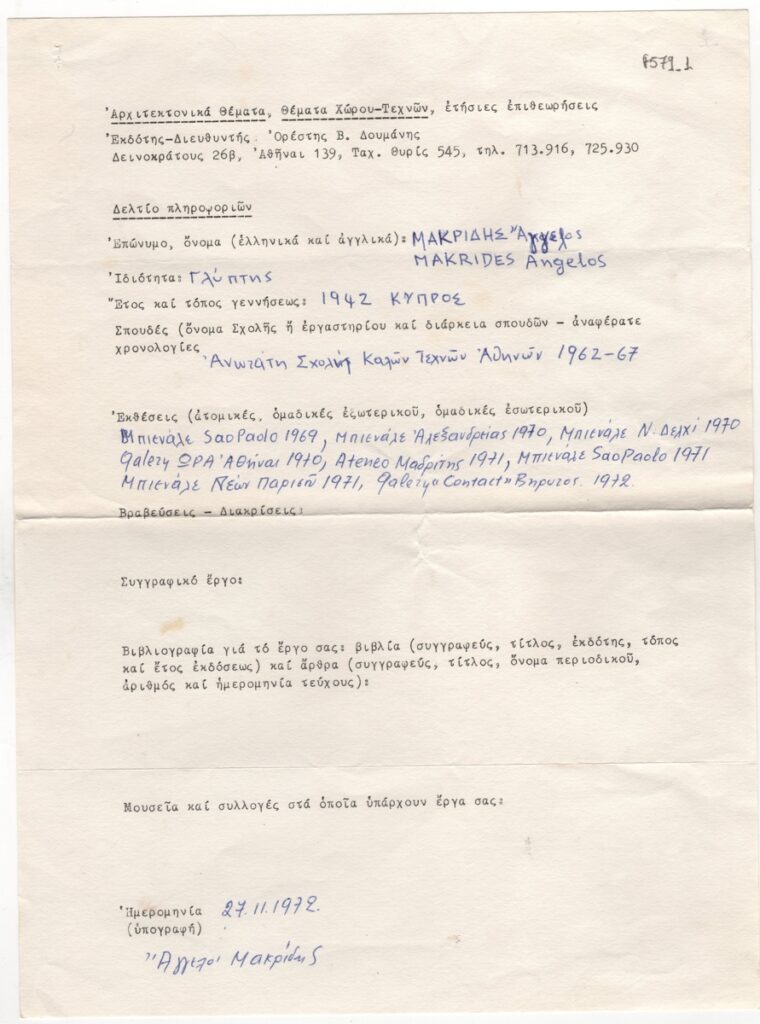 F579_1
Ἀρχιτεκτονικά Θέματα, Θέματα Χώρου-Τεχνῶν, ἐτήσιες ἐπιθεωρήσεις
Ἐκδότης-Διευθυντής Ὀρέστης Β. Δουμάνης
Δεινοκράτους 26β, Ἀθῆναι 139, Ταχ. Θυρίς 545, τηλ. 713.916, 725.930
Δελτίο πληροφοριῶν
Ἐπώνυμο, ὄνομα (ἑλληνικά καί ἀγγλικά): ΜΑΚΡΙΔΗΣ Ἄγγελος
MAKRIDES Angelos
Ἰδιότητα: Γλύπτης
Ἔτος καί τόπος γεννήσεως: 1942 ΚΥΠΡΟΣ
Σπουδές (ὄνομα Σχολῆς ἤ ἐργαστηρίου καί διάρκεια σπουδῶν - ἀναφέρατε
χρονολογίες
Ἀνωτάτη Σχολή Καλῶν Τεχνῶν Ἀθηνῶν 1962-67
Ἐκθέσεις (ἀτομικές, ὁμαδικές ἐξωτερικοῦ, ὁμαδικές ἐσωτερικοῦ)
Μπιενάλε Sao Paolo 1969, Μπιενάλε Ἀλεξανδρείας 1970, Μπιενάλε Ν. Δελχί 1970
Galery ΩΡΑ Ἀθῆναι 1970, Ateneo Μαδρίτης 1971, Μπιενάλε Sao Paolo 1971
Μπιενάλε Νέων Παρισῆ 1971, Galery «Contact» Βηρυτος. 1972.
Βραβεύσεις - Διακρίσεις:
Συγγραφικό ἔργο:
Βιβλιογραφία γιά τό ἔργο σας: βιβλία (συγγραφεύς, τίτλος, ἐκδότης, τόπος
καί ἔτος ἐκδόσεως) καί ἄρθρα (συγγραφεύς, τίτλος, ὄνομα περιοδικοῦ,
ἀριθμός καί ἡμερομηνία τεύχους):
Μουσεῖα καί συλλογές στά ὁποῖα ὑπάρχουν ἔργα σας:
Ἡμερομηνία 27.11.1972.
(ὑπογραφή)
Ἄγγελος Μακρίδης